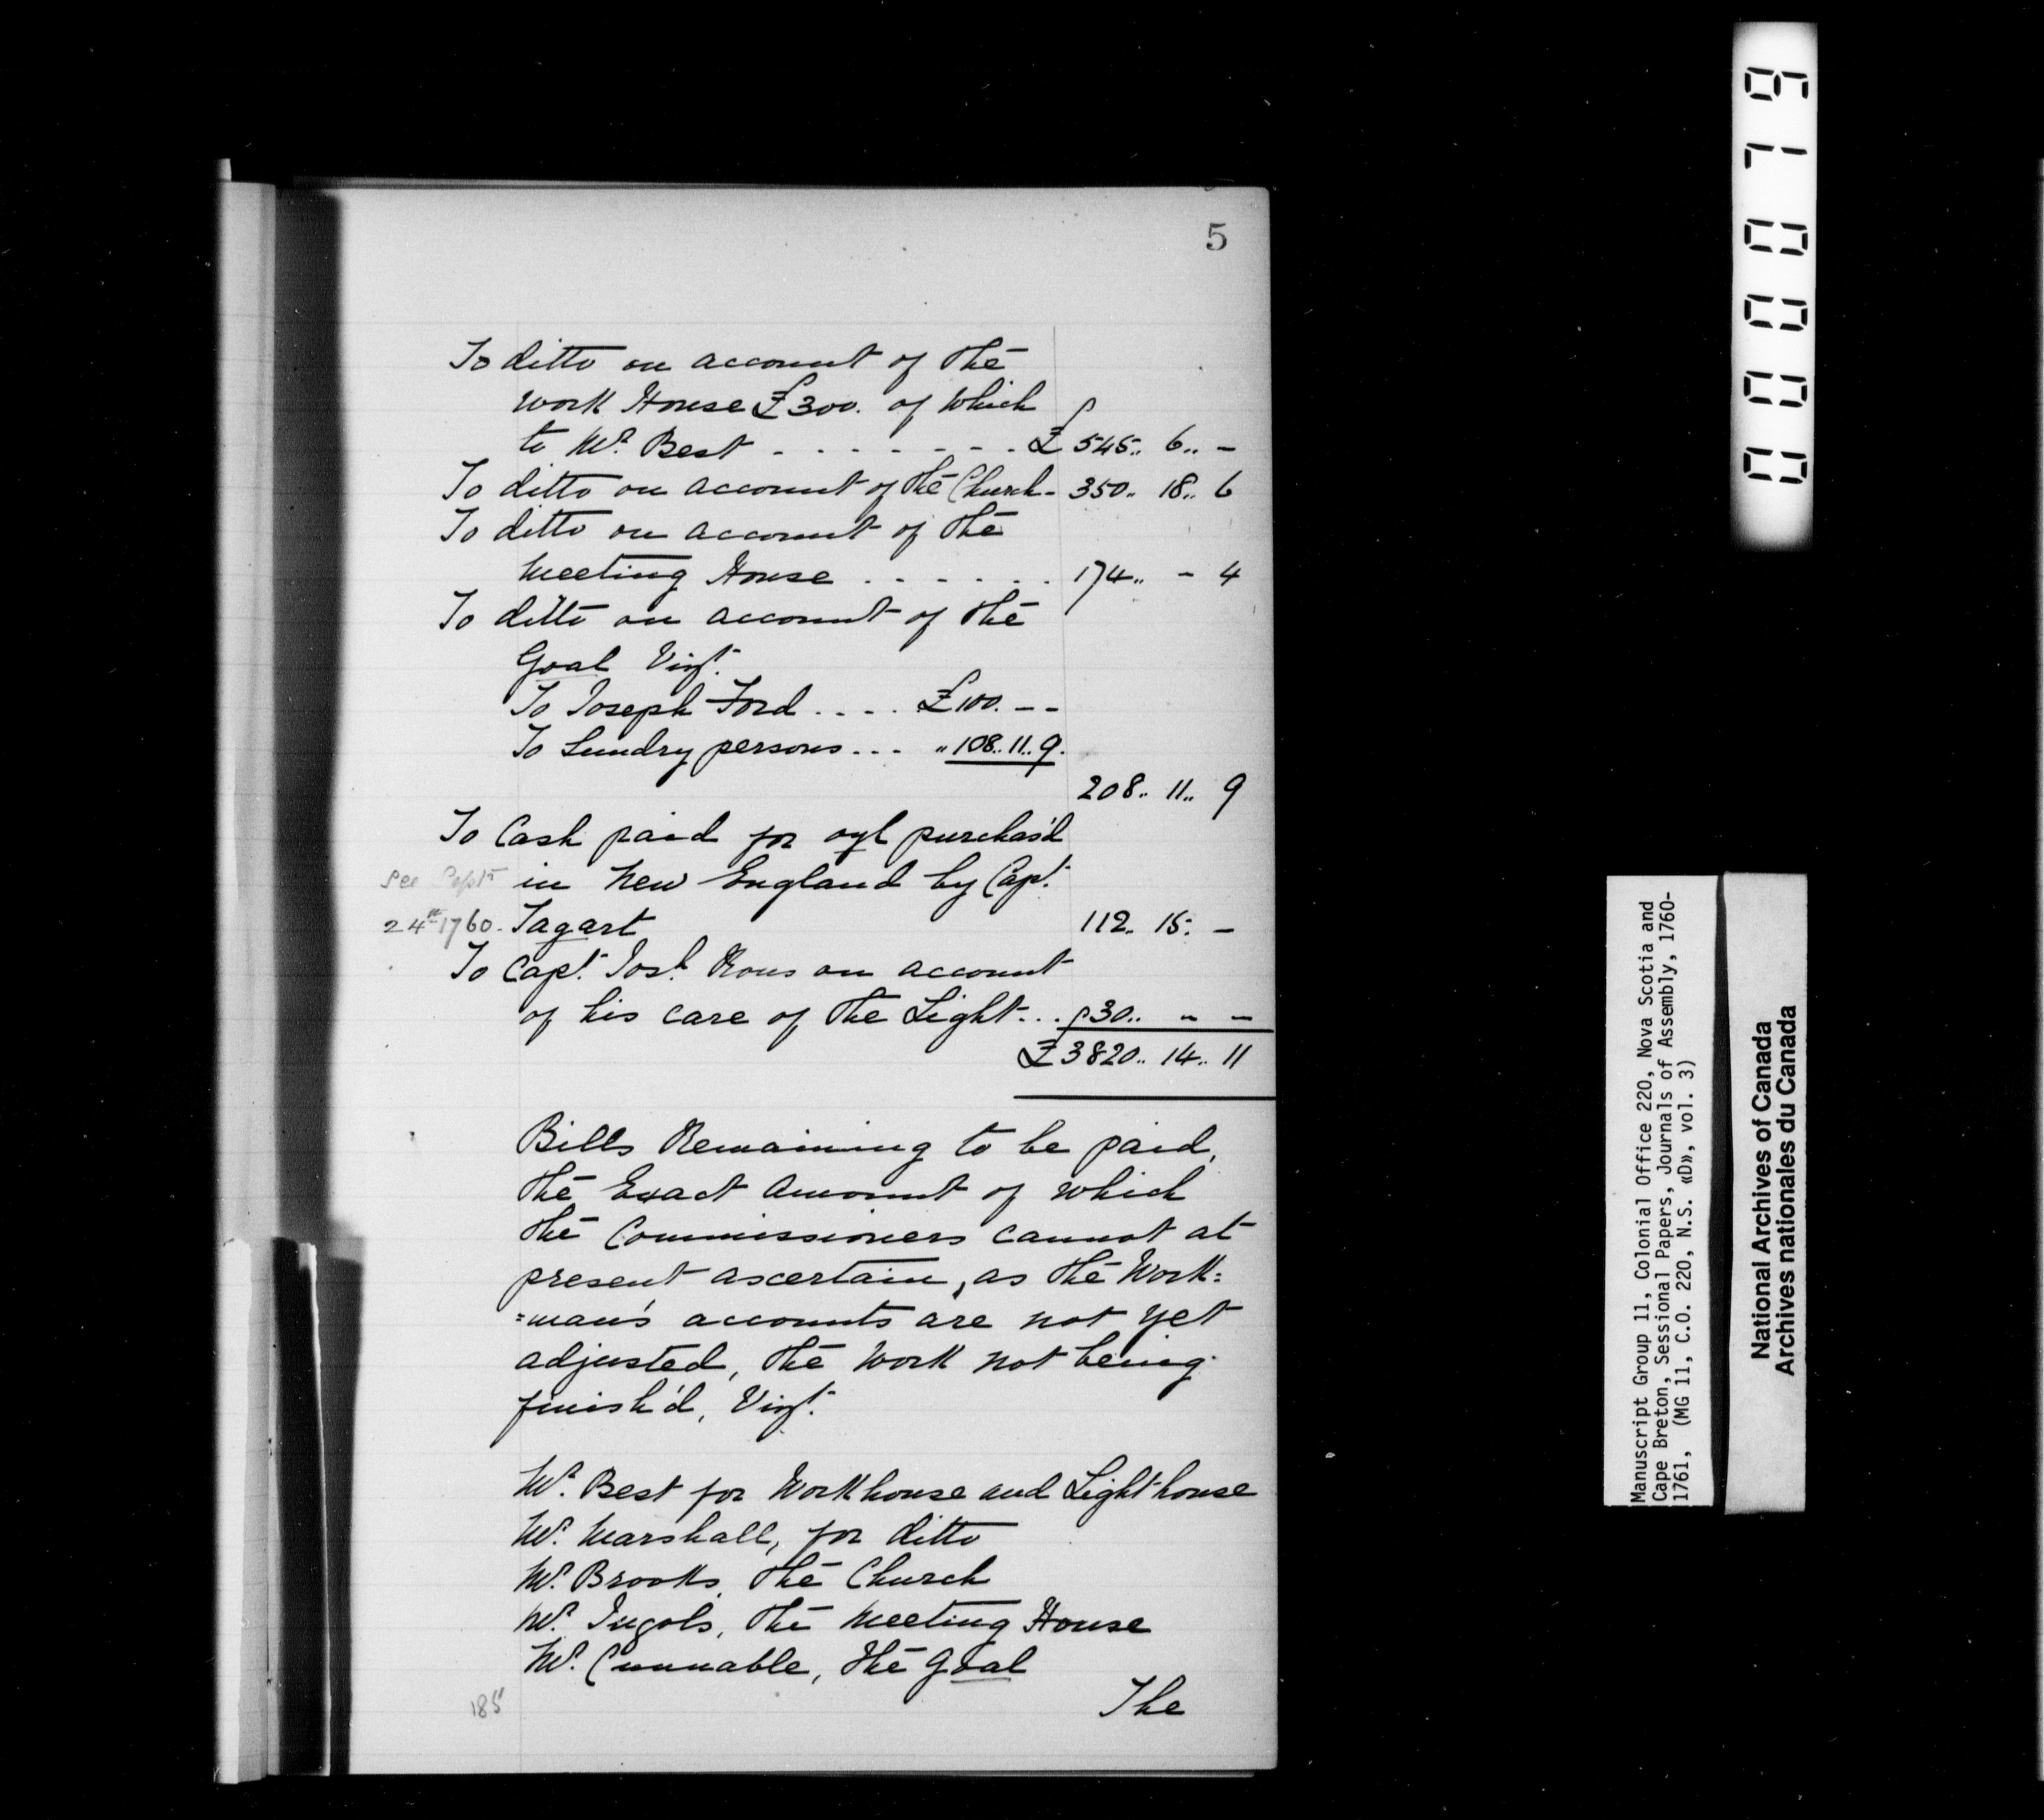 5
To ditto on account of the
work House £300. of which
to Mr. Best - - - - - - - £ 545.. 6.. -
To ditto on account of the Church - 350.. 18.. 6
To ditto on account of the
Meeting House . - - - - . 174.. - 4
To ditto on account of the
Goal Vizt.
To Joseph Ford . . . . £100. - -
To Sundry persons . . . " 108.. 11.. 9.
208.. 11.. 9
To Cash paid for oyl purchas'd
See Septr in New England by Capt.
24th 1760. Tagart 112.. 15: -
To Capt. Josh. Rous on account
of his care of the Light - . . 30.. - -
£3820.. 14.. 11
Bills Remaining to be paid,
the Exact Amount of which
the Commissioners cannot at
present ascertain, as the Work=
=man's accounts are not yet
adjusted, the work not being
finish'd, Vizt.
Mr. Best for Workhouse and Lighthouse
Mr. Marshall, for ditto
Mr. Brooks, the Church
Mr. Ingols, the Meeting House
Mr. Cunnable, the Goal
The
185
00000719
Manuscript Group 11, Colonial Office 220, Nova Scotia and
Cape Breton, Sessional Papers, Journals of Assembly, 1760-
1761, (MG 11, C.O. 220, N.S. «D», vol. 3)
National Archives of Canada
Archives nationales du Canada